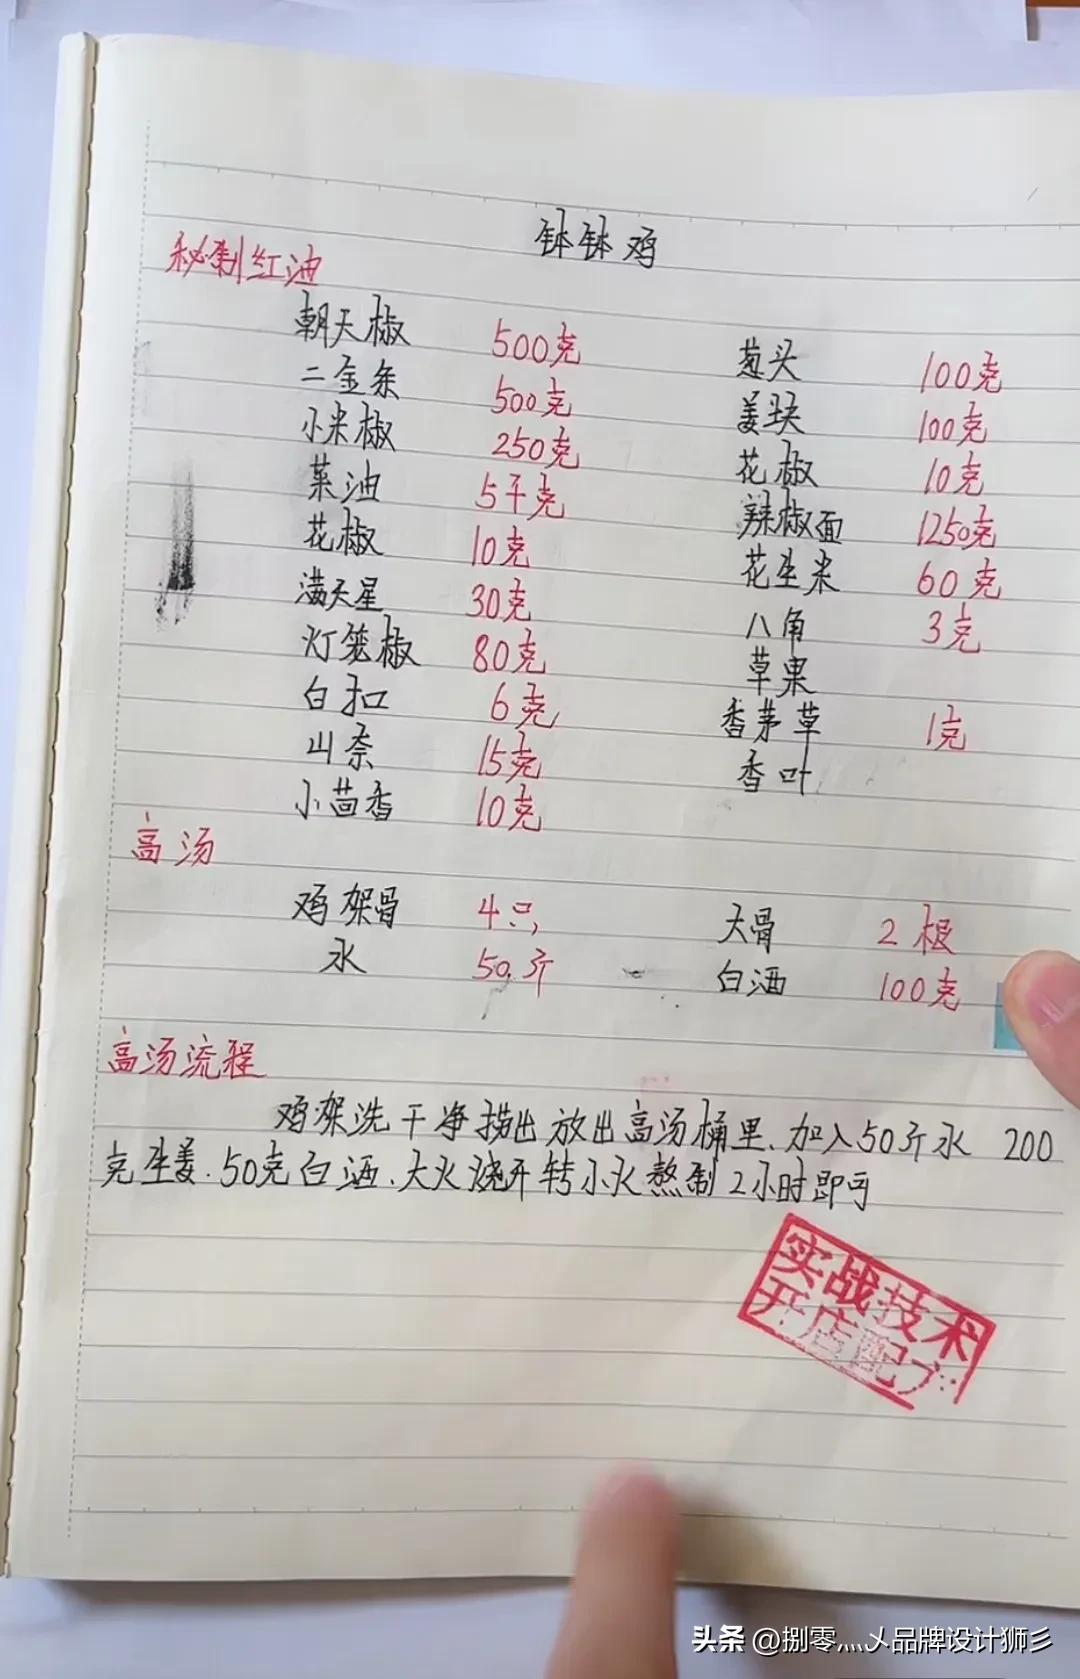 钵钵鸡
秘制红油
朝天椒 500克 葱头 100克
二金条 500克 姜块 100克
小米椒 250克 花椒 10克
菜油 5千克 辣椒面 1250克
花椒 10克 花生米 60克
满天星 30克 八角 3克
灯笼椒 80克 草果
白扣 6克 香茅草 1克
山奈 15克 香叶
小茴香 10克
高汤
鸡架骨 4只 大骨 2根
水 50斤 白酒 100克
高汤流程
鸡架洗干净捞出放出高汤桶里、加入50斤水 200
克生姜.50克白酒、大火烧开转小火熬制2小时即可
实战技术
开店配方
头条 @捌零灬乄品牌设计狮彡